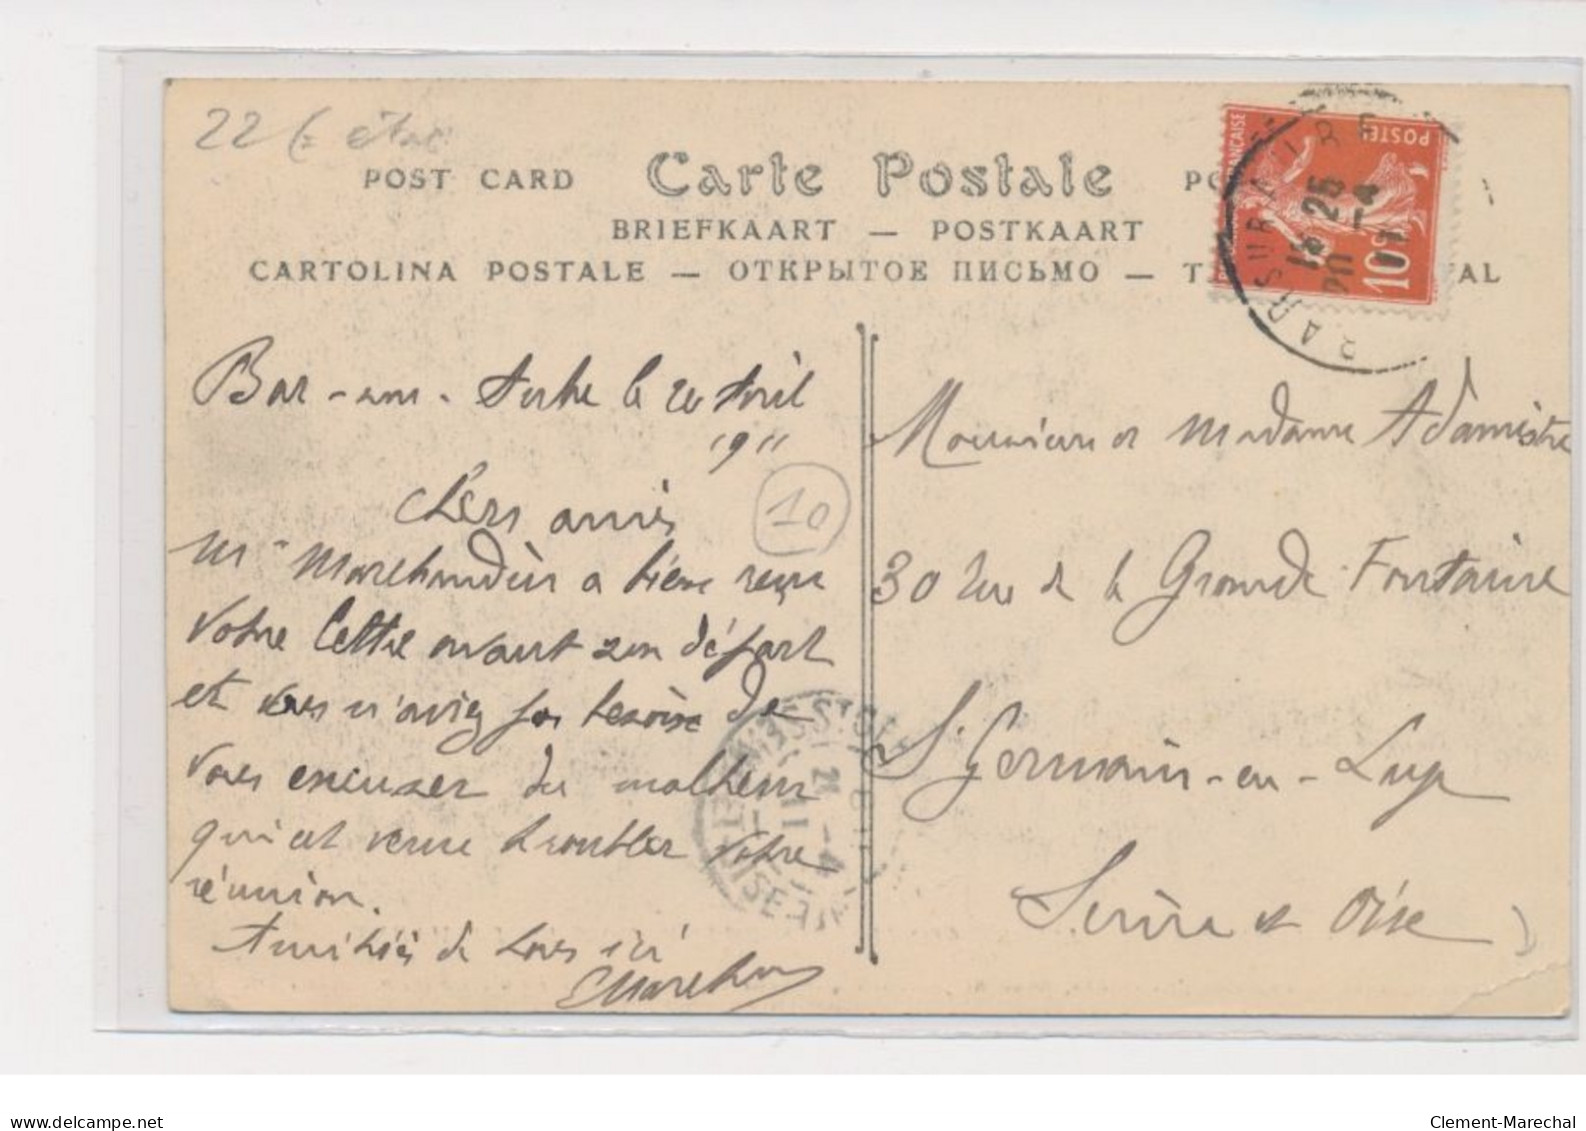 22
POST CARD Carte Postale
BRIEFKAART — POSTKAART
CARTOLINA POSTALE — ОТКРЫТОЕ ПИСЬМО —
AL
FRANÇAISE
POSTES
10c
BAR SUR AUBE
15 25
20 -4
11
Bar-sur-Aube le 20 Avril
1911
Chers amis
10
Mr Marchandin a bien reçu
votre lettre avant son départ
et vous n'aviez pas besoin de
vous excuser du malheur
qui est venu troubler votre
réunion.
Amitiés de tous ici
21 -4
11
SEINE-ET-OISE
Monsieur et Madame Adamistre
30 rue de la Grande Fontaine
St Germain-en-Laye
Seine et Oise
www.delcampe.net
Clement-Marechal